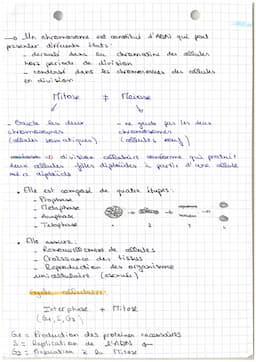 → Un chromosome est constitué d'ADN qui peut
présenter différents états :
- déroulé dans la chromatine des cellules
hors période de division
- condensé dans les chromosomes des cellules
en division
Mitose ≠ Meiose
- Garde les deux
chromosomes
(cellules somatiques)
- ne garde pas les deux
chromosomes
(cellules oeuf)
division cellulaire conforme qui produit
deux cellules filles diploïdes à partir d'une cellule
mère diploïde
• Elle est composé de quatre étapes :
- Prophase
- Métaphase
- Anaphase
- Télophase
• Elle assure :
- Renouvellement de cellules
- Croissance des tissus
- Reproduction des organismes
unicellulaires
Cycle cellulaire
Interphase + Mitose
(G1, S, G2)
G1 = Production des protéines nécessaires
S = Réplication de l'ADN
G2 = Préparation à la Mitose